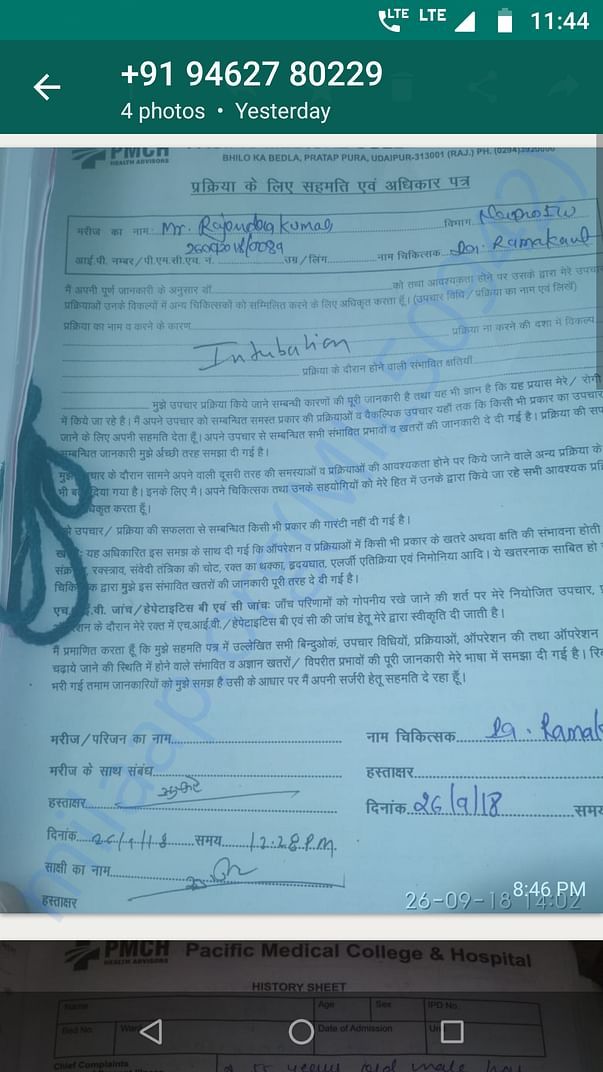 LTE LTE 11:44
+91 94627 80229
4 photos • Yesterday
PMCH
HEALTH ADVISORS
BHILO KA BEDLA, PRATAP PURA, UDAIPUR-313001 (RAJ.) PH.
प्रक्रिया के लिए सहमति एवं अधिकार पत्र
मरीज का नाम: Mr. Rajendra kumar विभाग
आई.पी. नम्बर/पी.एम.सी.एच. न. उम्र/लिंग नाम चिकित्सक Dr. Ramakant
मैं अपनी पूर्ण जानकारी के अनुसार को तथा आवश्यकता होने पर उसके द्वारा मेरे उपचार
प्रक्रियाओं उनके विकल्पों में अन्य चिकित्सकों को सम्मिलित करने के लिए अधिकृत करता हूँ। (उपचार विधि / प्रक्रिया का नाम एवं लिखें)
प्रक्रिया का नाम व करने के कारण प्रक्रिया ना करने की दशा में विकल्प
Intubation
प्रक्रिया के दौरान होने वाली संभावित क्षतियाँ
मुझे उपचार प्रक्रिया किये जाने सम्बन्धी कारणों की पूरी जानकारी है तथा यह भी ज्ञान है कि यह प्रयास मेरे/ रोगी
में किये जा रहे है। मैं अपने उपचार को सम्बन्धित समस्त प्रकार की प्रक्रियाओं व वैकल्पिक उपचार यहाँ तक कि किसी भी प्रकार का उपचार
जाने के लिए अपनी सहमति देता हूँ। अपने उपचार से सम्बन्धित सभी संभावित प्रभावों व खतरों की जानकारी दे दी गई है। प्रक्रिया की
सम्बन्धित जानकारी मुझे अच्छी तरह समझा दी गई है।
के दौरान सामने अपने वाली दूसरी तरह की समस्याओं व प्रक्रियाओं की आवश्यकता होने पर किये जाने वाले अन्य प्रक्रिया के
दिया गया है। इनके लिए मैं। अपने चिकित्सक तथा उनके सहयोगियों को मेरे हित में उनके द्वारा किये जा रहे सभी आवश्यक
करता हूँ।
उपचार/ प्रक्रिया की सफलता से सम्बन्धित किसी भी प्रकार की गारंटी नहीं दी गई है।
यह अधिकारित इस समझ के साथ दी गई कि ऑपरेशन व प्रक्रियाओं में किसी भी प्रकार के खतरे अथवा क्षति की संभावना होती
रक्तस्त्राव, संवेदी तंत्रिका की चोट, रक्त का थक्का, हृदयघात, एलर्जी एतिक्रिया एवं निमोनिया आदि। ये खतरनाक साबित हो
द्वारा मुझे इस संभावित खतरों की जानकारी पूरी तरह दे दी गई है।
एच.आई.वी. जांच/हेपेटाइटिस बी एवं सी जांच: जाँच परिणामों को गोपनीय रखे जाने की शर्त पर मेरे नियोजित उपचार,
के दौरान मेरे रक्त में एच.आई.वी./हेपेटाइटिस बी एवं सी की जांच हेतू मेरे द्वारा स्वीकृति दी जाती है।
मैं प्रमाणित करता हूँ कि मुझे सहमति पत्र में उल्लेखित सभी बिन्दुओकं, उपचार विधियों, प्रक्रियाओं, ऑपरेशन की तथा ऑपरेशन
चढाये जाने की स्थिति में होने वाले संभावित व अज्ञान खतरों/ विपरीत प्रभावों की पूरी जानकारी मेरे भाषा में समझा दी गई है।
भरी गई तमाम जानकारियों को मुझे समझ है उसी के आधार पर मैं अपनी सर्जरी हेतू सहमति दे रहा हूँ।
मरीज/परिजन का नाम नाम चिकित्सक Dr. Ramak
मरीज के साथ संबंध हस्ताक्षर
हस्ताक्षर दिनांक 26/9/18 समय
दिनांक 26/9/18 समय 12:28 P.M.
साक्षी का नाम
हस्ताक्षर
26-09-18 14:02
8:46 PM
milaap.org
PMCH Pacific Medical College & Hospital
HEALTH ADVISORS
HISTORY SHEET
Name Age Sex IPD No.
Bed No. Date of Admission
Chief Complaints years old male